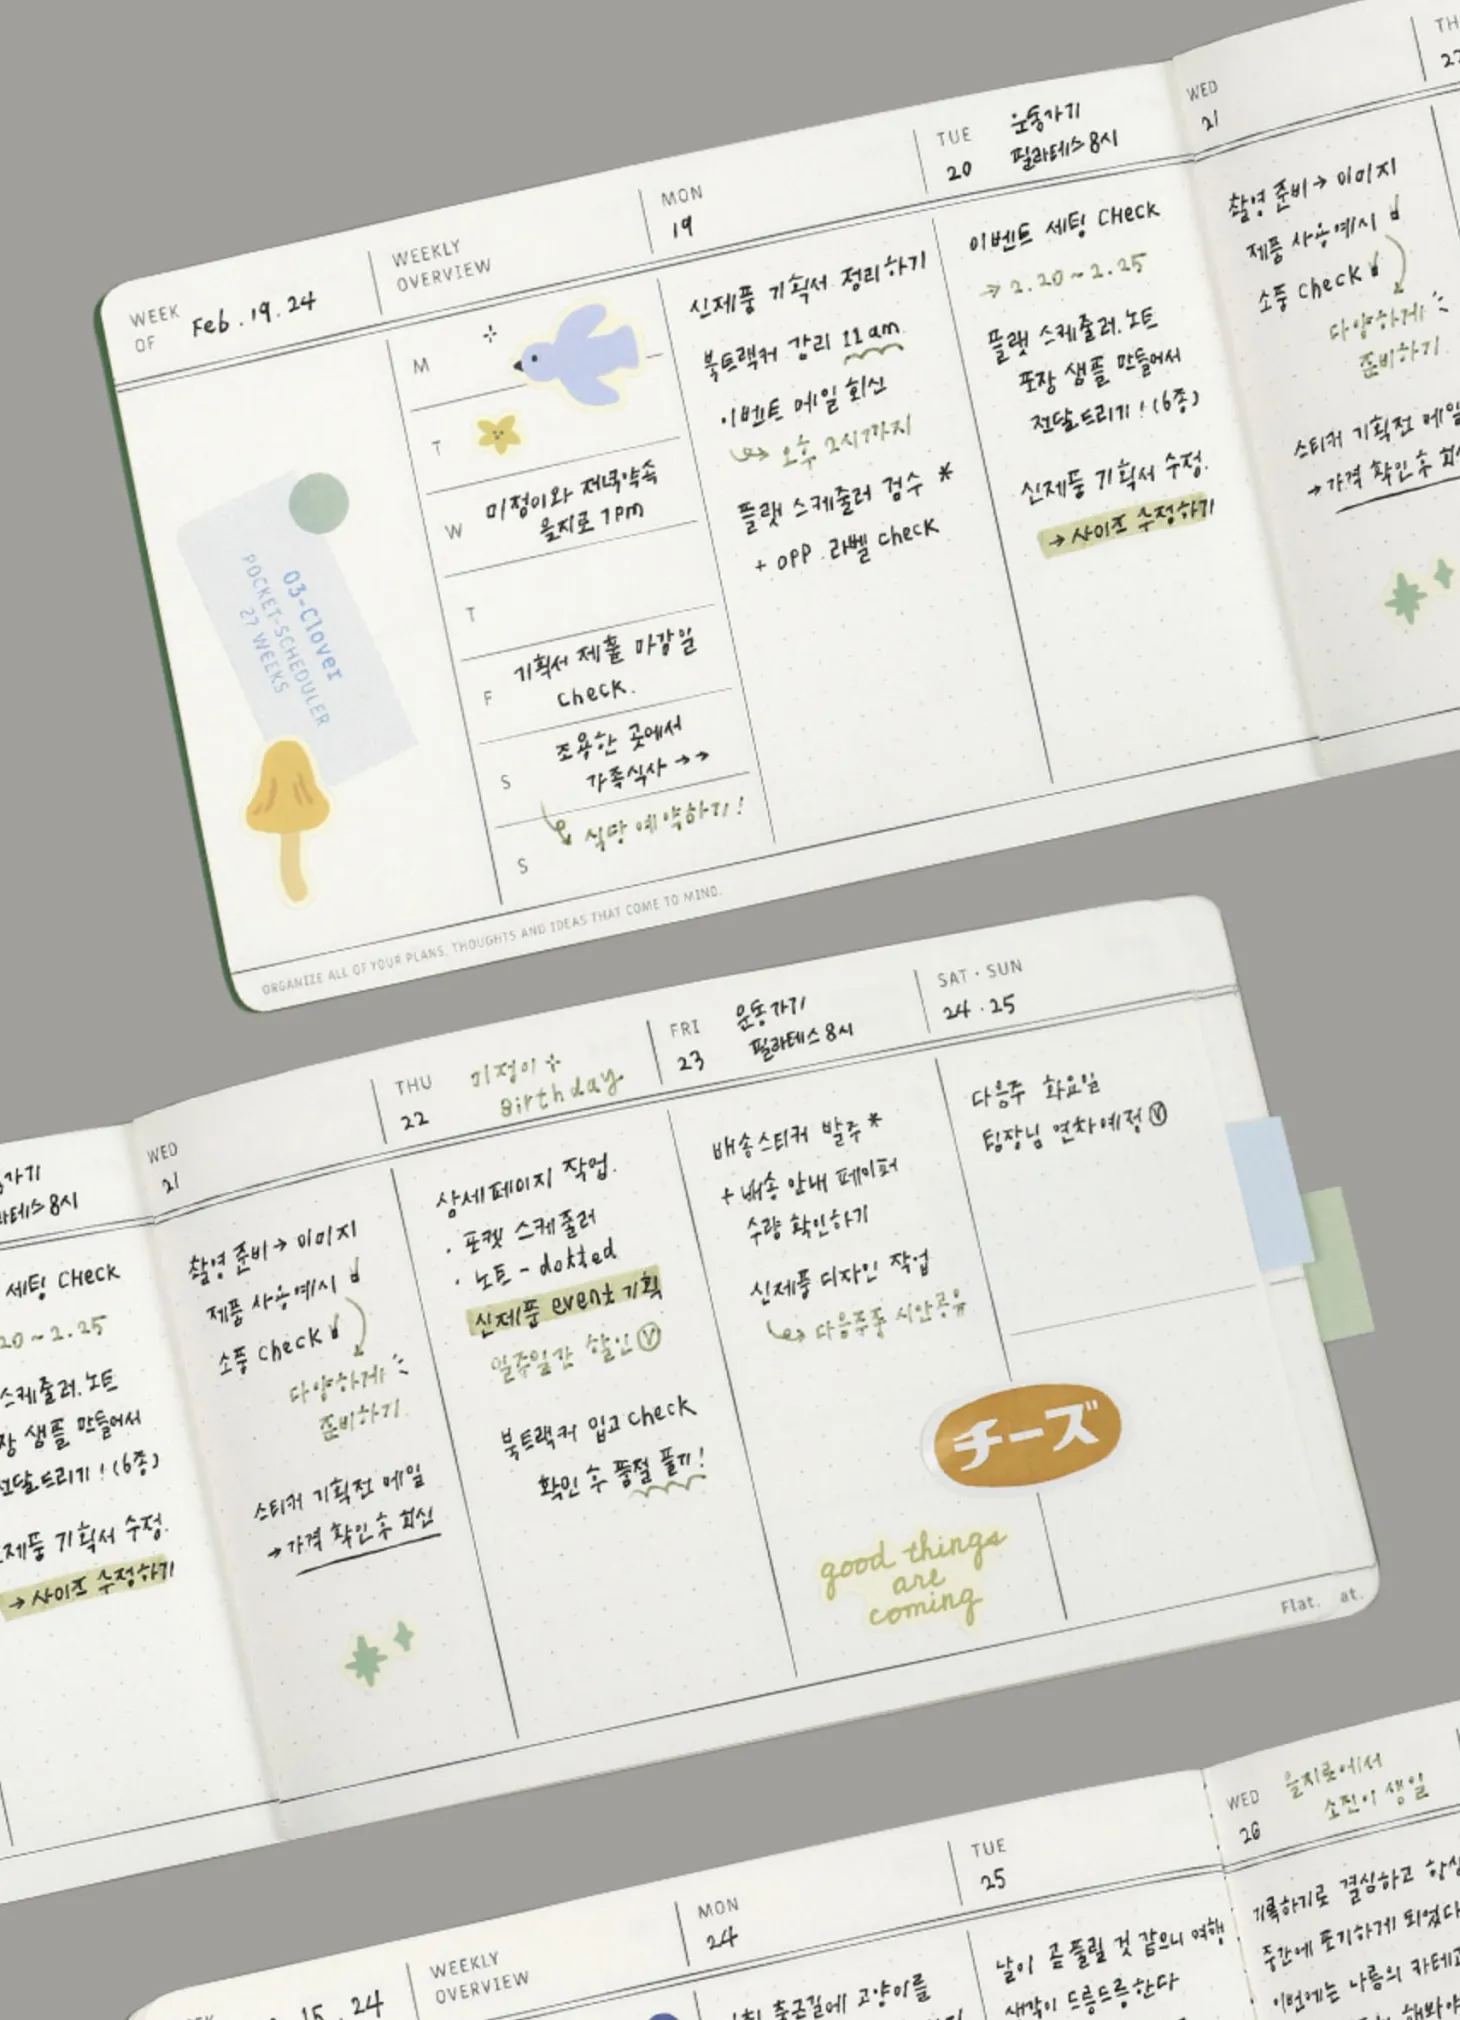 WEEK
OF
Feb. 19. 24
WEEKLY
OVERVIEW
MON
19
TUE
20
운동가기
필라테스 8시
WED
21
M
T
W
미정이와 저녁약속
을지로 7pm
T
F
기획서 제출 마감일
check.
S
조용한 곳에서
가족식사 → →
S
식당 예약하기!
03-Clover
POCKET-SCHEDULER
27 WEEKS
ORGANIZE ALL OF YOUR PLANS, THOUGHTS AND IDEAS THAT COME TO MIND.
신제품 기획서 정리하기
북트랙커 감리 11am.
이벤트 메일 회신
오후 2시까지
플랫 스케줄러 검수 *
+ OPP. 라벨 check
이벤트 세팅 CHECK
→ 2.20 ~ 2.25
플랫 스케줄러. 노트
포장 샘플 만들어서
전달드리기! (6종)
신제품 기획서 수정.
→ 사이즈 수정하기
촬영 준비 → 이미지
제품 사용예시
소품 check
다양하게
준비하기
스티커 기획전 메일
→ 가격 확인 후
가기
라테스 8시
세팅 CHECK
20 ~ 2.25
스케줄러. 노트
장 샘플 만들어서
전달드리기! (6종)
제품 기획서 수정.
→ 사이즈 수정하기
WED
21
촬영 준비 → 이미지
제품 사용예시
소품 check
다양하게
준비하기
스티커 기획전 메일
→ 가격 확인 후 회신
THU
22
미정이
Birthday
상세페이지 작업.
· 포켓 스케줄러
· 노트 - dotted
신제품 event 기획
일주일간 할인 ⓥ
북트랙커 입고 check
확인 후 품절 풀기!
FRI
23
운동가기
필라테스 8시
배송스티커 발주 *
+ 배송 안내 페이퍼
수량 확인하기
신제품 디자인 작업
다음주중 시안공유
SAT · SUN
24 · 25
다음주 화요일
팀장님 연차예정 ⓥ
チーズ
good things
are
coming
Flat. at.
15. 24
WEEKLY
OVERVIEW
MON
24
출근길에 고양이를
TUE
25
날이 곧 풀릴 것 같으니 여행
생각이 드릉드릉한다
WED
26
을지로에서
소진이 생일
기록하기로 결심하고 항상
중간에 포기하게 되었다
이번에는 나름의 카테고
해봐야